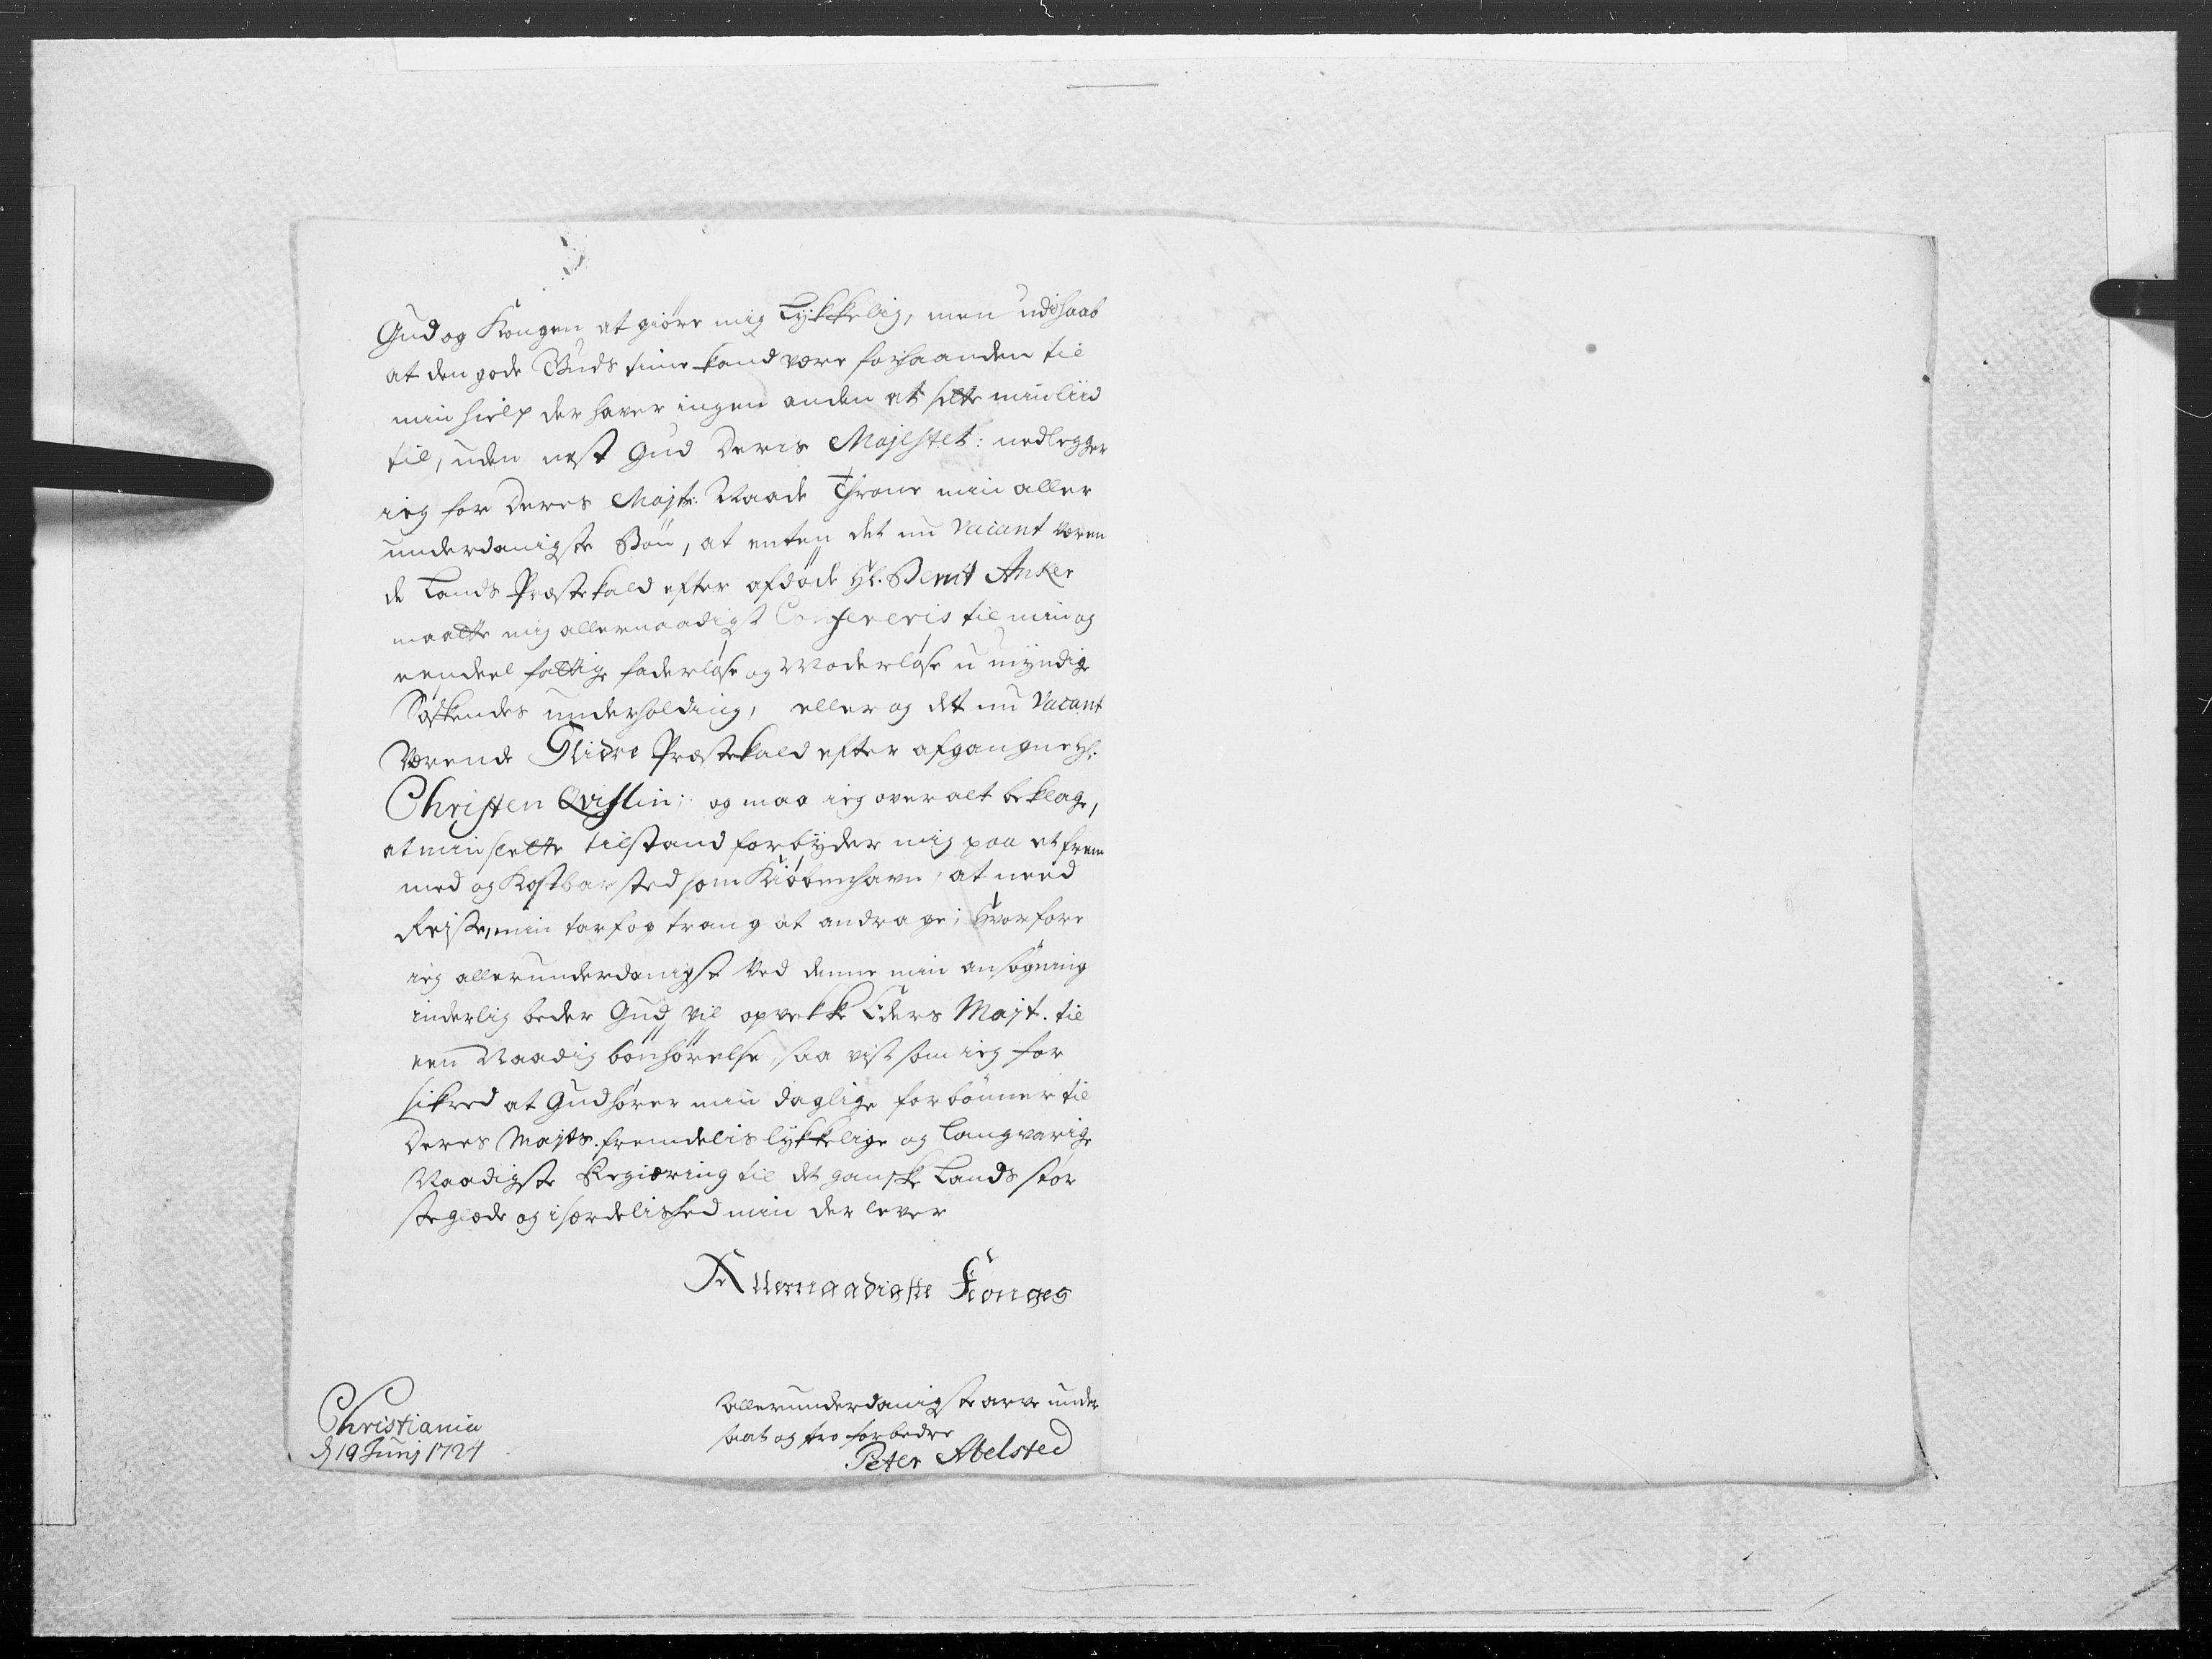 Gud og Kongen at giöre mig Lykkelig, men udi haab
at den gode Guds time kand være forhaanden til
min hielp der haver ingen anden at sette min liid
til, uden nest Gud Deris Majestet: nedlegger
ieg for Deres Majts: Naade Throne min aller
underdanigste Bön, at enten det nu vacant væren
de Lands Præstekald efter afdöde Hr. Bernt Anker
maatte mig allernaadigst Confereris til min og
eendeel fattige faderløse og Moderløse u myndige
Søskendes underholding, eller og det nu Vacant
Værende Slidre Præstekald efter afgangne Hr.
Christen Qvislin; og maa ieg over alt beklage,
at min slette tilstand forbyder mig paa et frem
med og Kostbar sted som Kiøbenhavn, at need
Reise, min tarf og trang at andrage; hvorfore
ieg allerunderdanigst Ved denne min ansögning
inderlig beder Gud vil opvekke Eders Majt. til
een Naadig bönhörelse, saa vist som ieg for
sikred at Gud hører min daglige forbönner til
Deres Majts. fremdelis lykkelige og langvarige
Naadigste Regiæring til det ganske Lands stør
ste glæde og i særdelished min der lever
Allernaadigste Konges
Allerunderdanigste arve under
saat og tro forbedre
Peter Abelsted
Christiania
d 19 Junj 1724